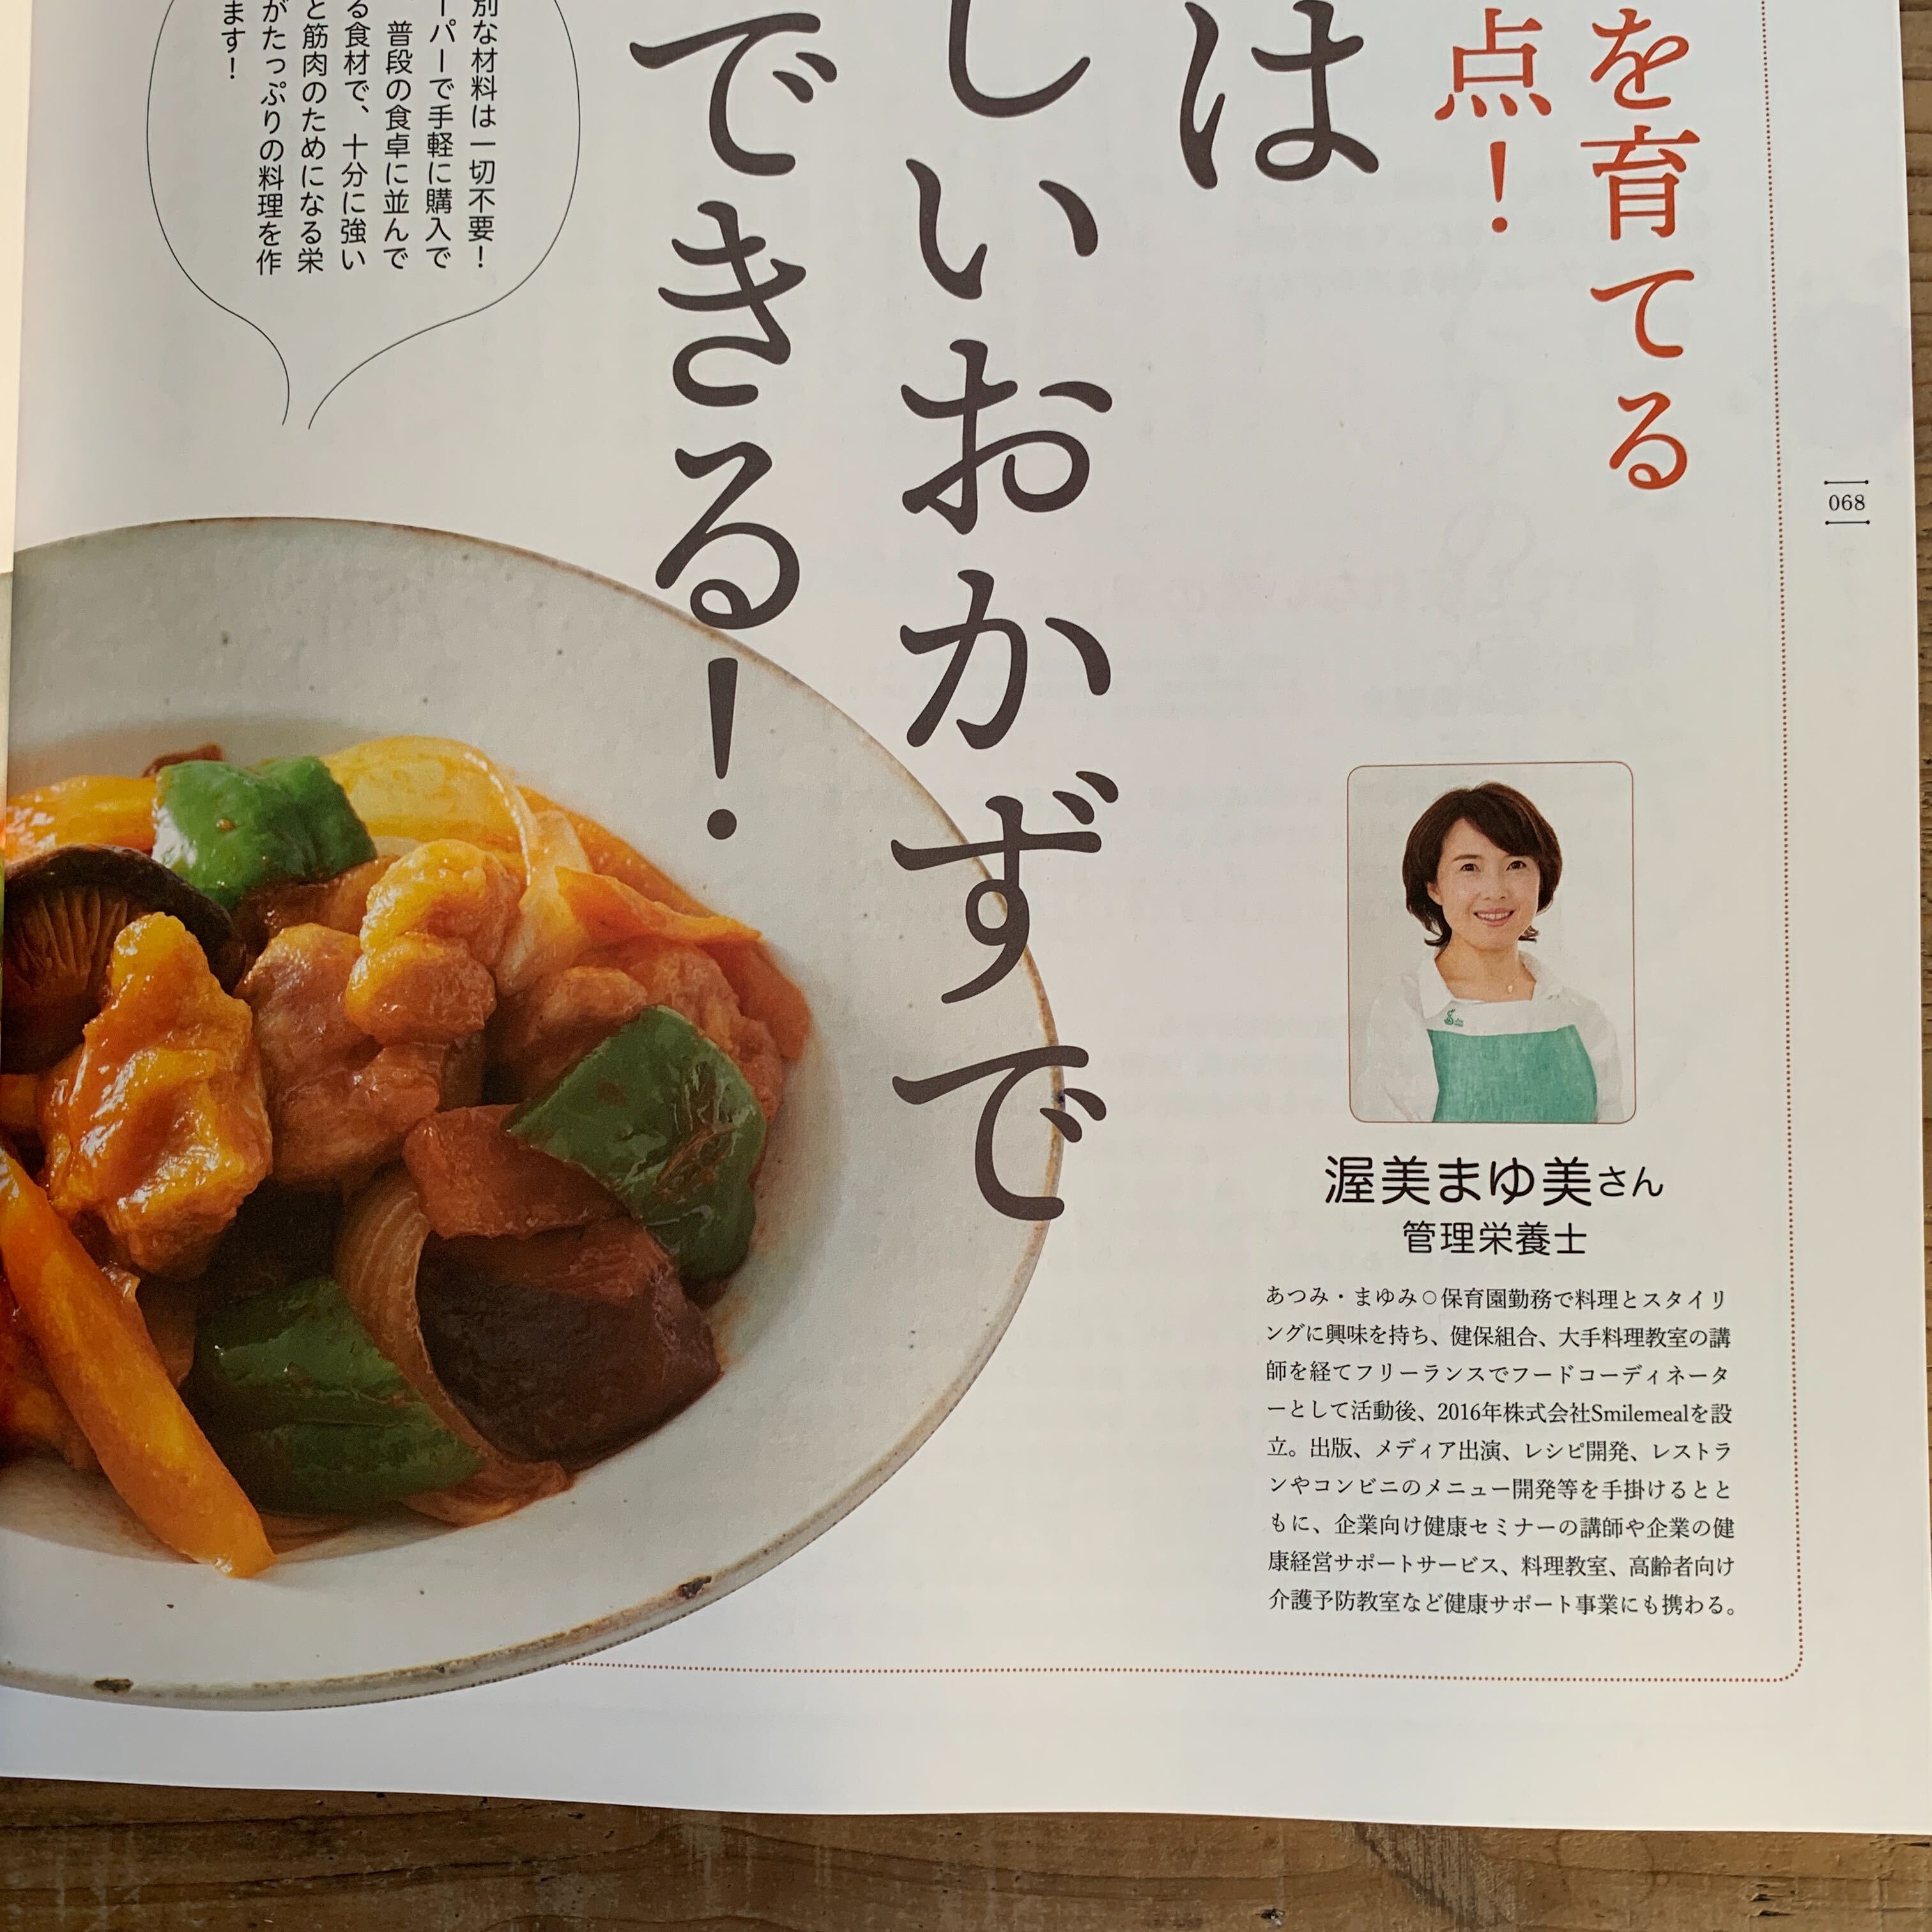 を育てる
点！
は
しいおかずで
できる！
別な材料は一切不要！
ーパーで手軽に購入で
普段の食卓に並んで
る食材で、十分に強い
と筋肉のためになる栄
がたっぷりの料理を作
ます！
068
渥美まゆ美さん
管理栄養士
あつみ・まゆみ○保育園勤務で料理とスタイリ
ングに興味を持ち、健保組合、大手料理教室の講
師を経てフリーランスでフードコーディネータ
ーとして活動後、2016年株式会社Smilemealを設
立。出版、メディア出演、レシピ開発、レストラ
ンやコンビニのメニュー開発等を手掛けるとと
もに、企業向け健康セミナーの講師や企業の健
康経営サポートサービス、料理教室、高齢者向け
介護予防教室など健康サポート事業にも携わる。